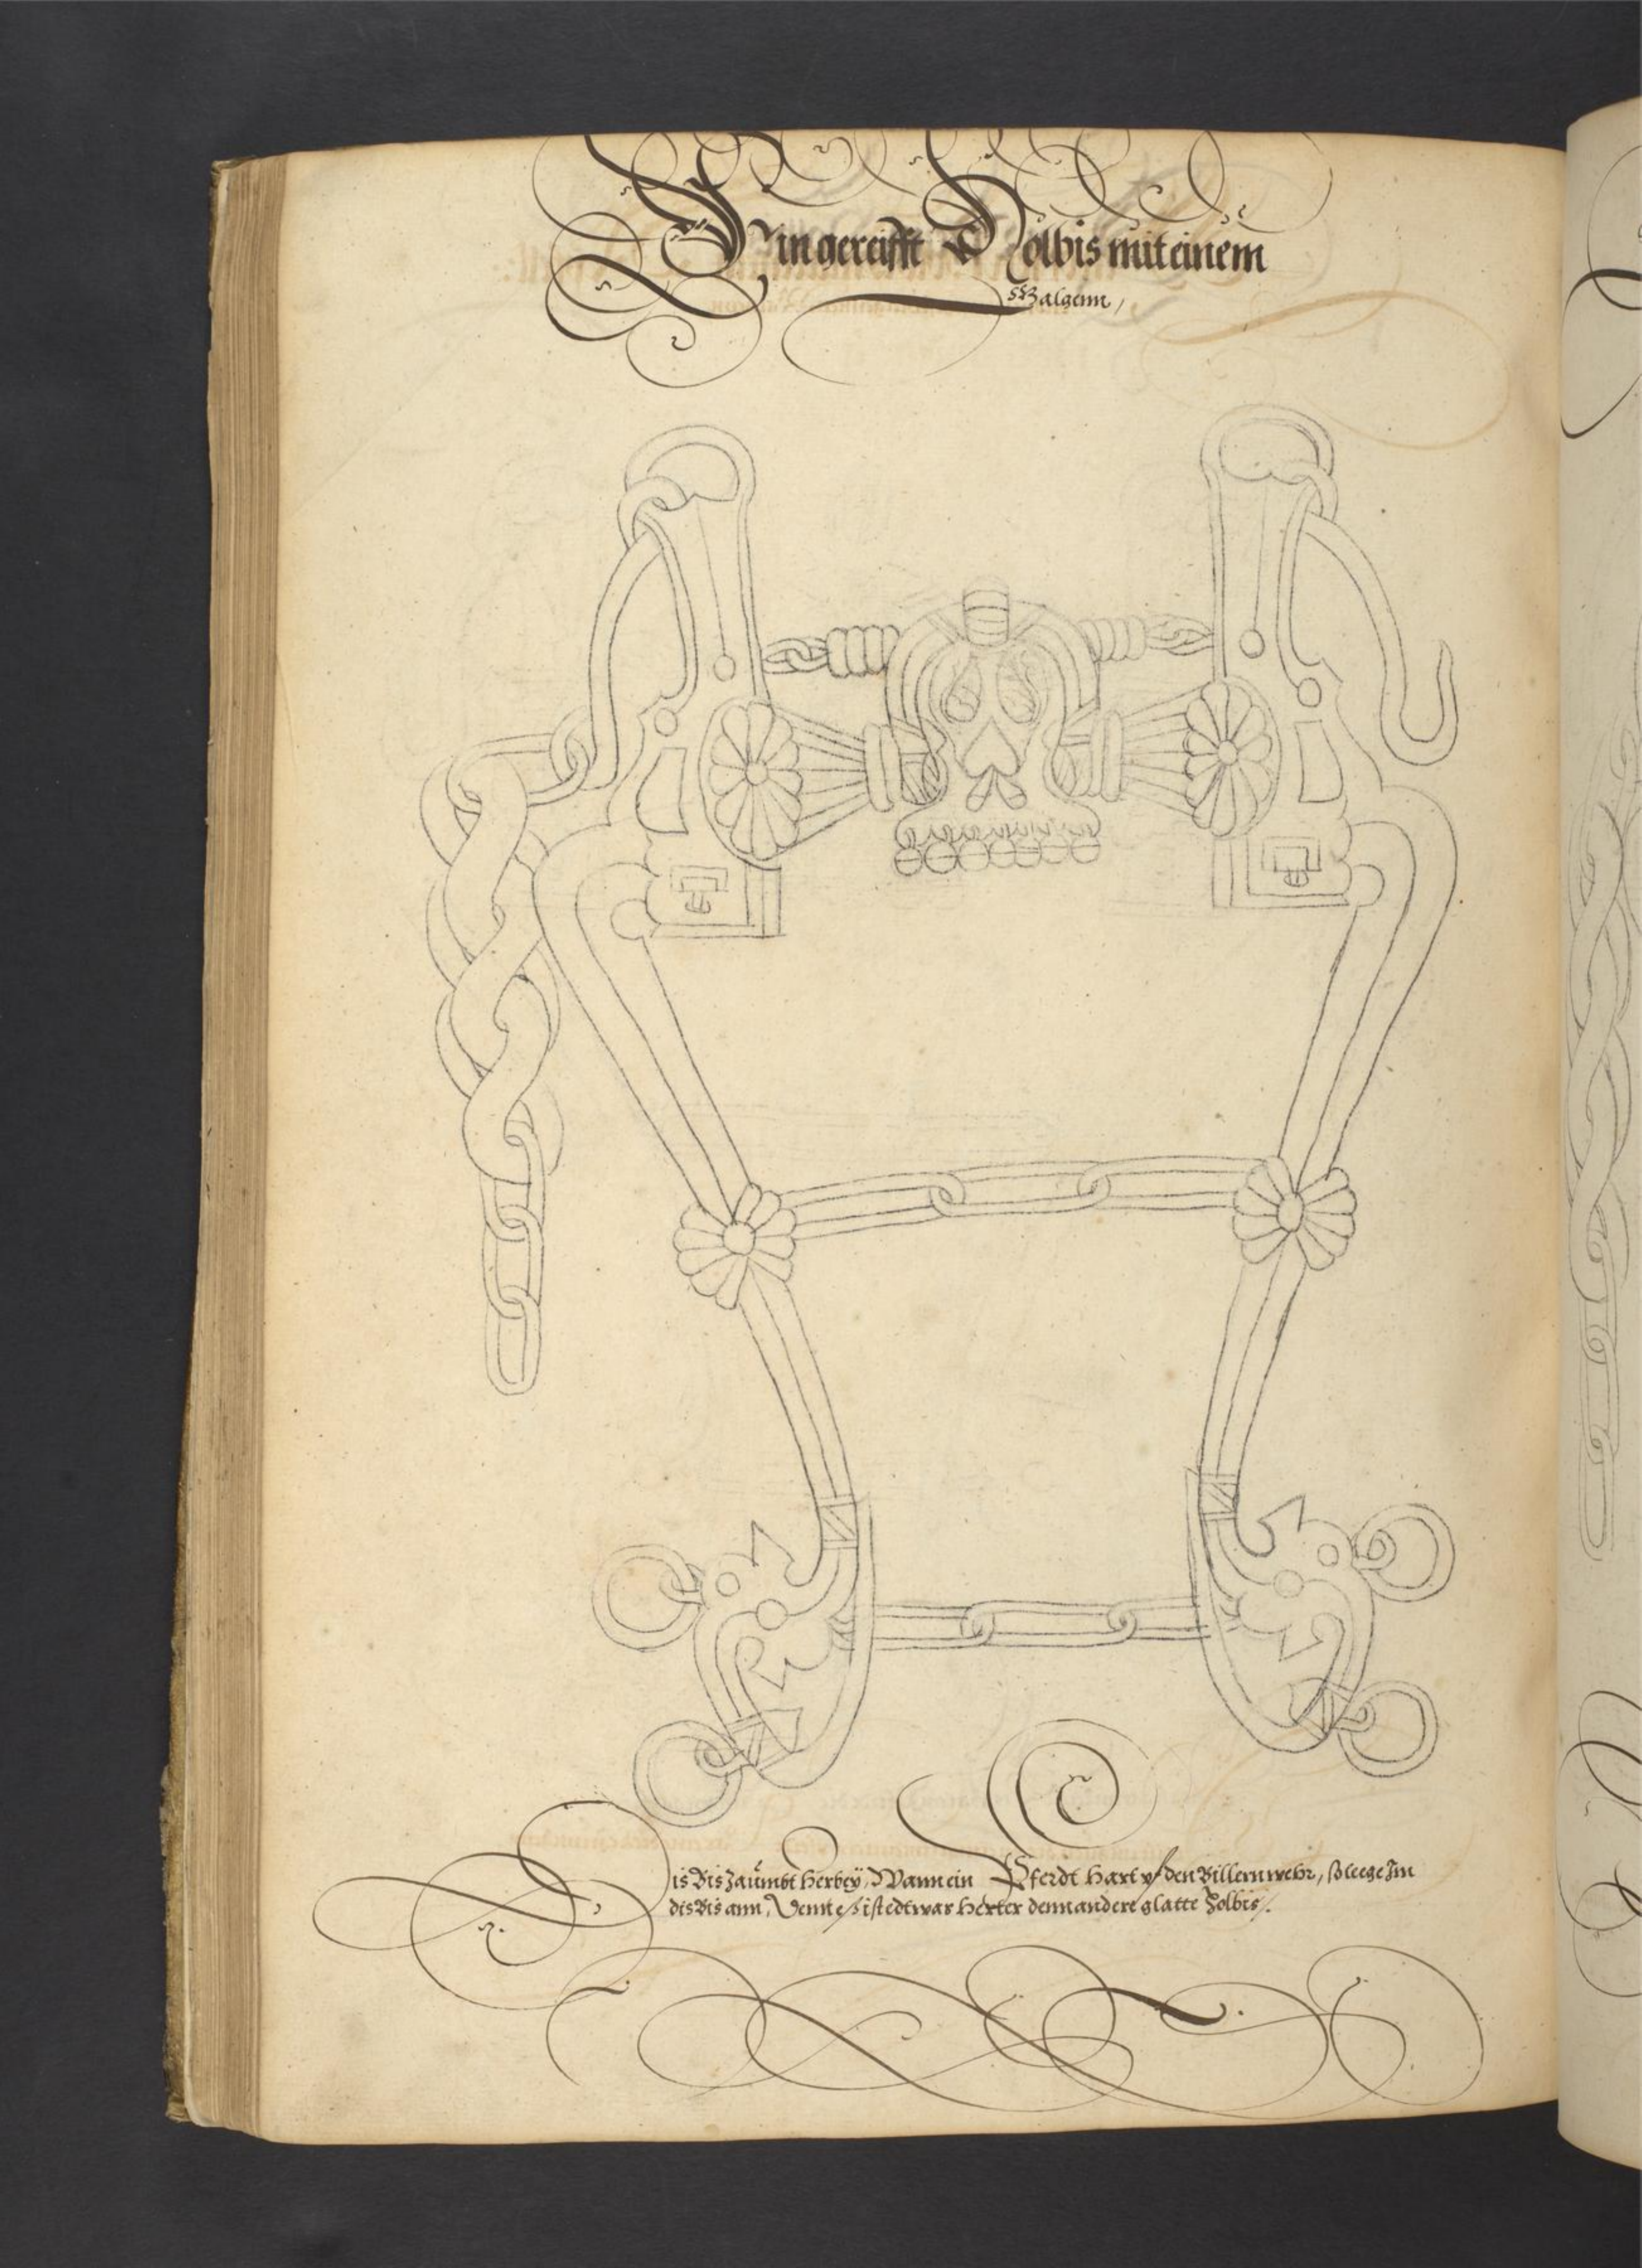 Ein gereifft Holbis mit einem
Galgenn,
Dis Bis zaümbt herbeÿ, Wann ein Pferdt hart vf den Billern wehr, so leege Im
dis Bis ann, Denn es ist edtwas herter denn andere glatte Holbis.